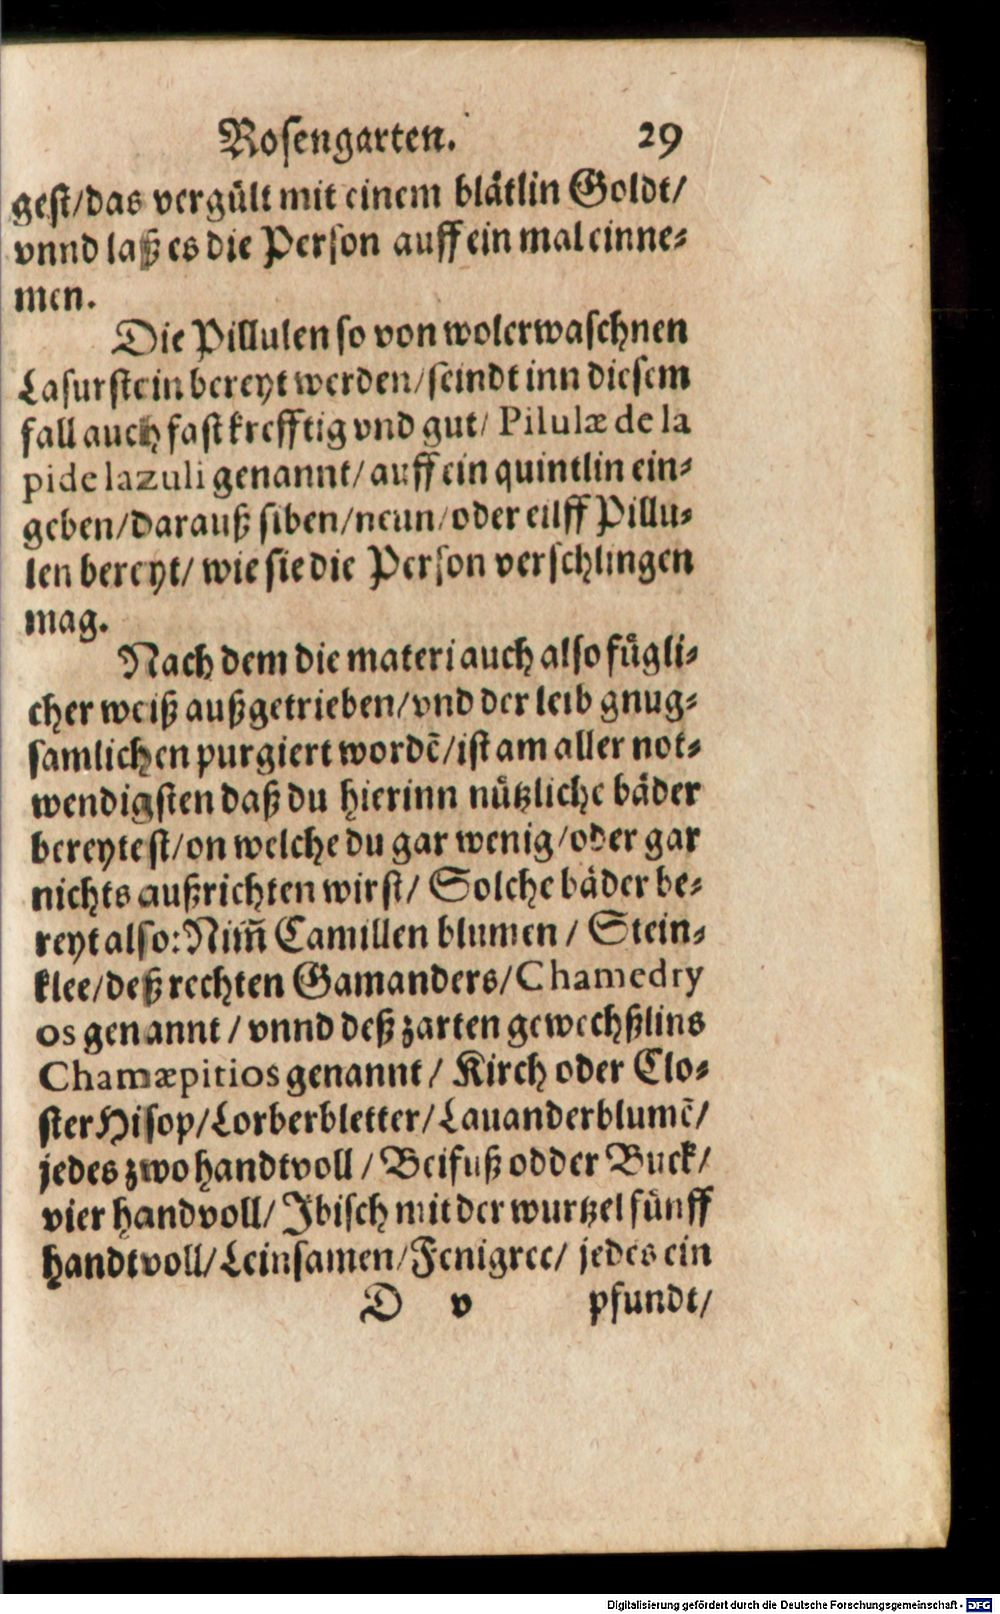 Rosengarten. 29
gest/das vergült mit einem blätlin Goldt/
vnnd laß es die Person auff ein mal einne⸗
men.
Die Pillulen so von wolerwaschnen
Lasurstein bereyt werden/seindt inn diesem
fall auch fast krefftig vnd gut/ Pilulæ de la
pide lazuli genannt/ auff ein quintlin ein⸗
geben/darauß siben/neun/oder eilff Pillu⸗
len bereyt/ wie sie die Person verschlingen
mag.
Nach dem die materi auch also fügli⸗
cher weiß außgetrieben/vnd der leib gnug⸗
samlichen purgiert wordē/ist am aller not⸗
wendigsten daß du hierinn nützliche bäder
bereytest/on welche du gar wenig/oder gar
nichts außrichten wirst/ Solche bäder be⸗
reyt also: Nim̃ Camillen blumen / Stein⸗
klee/deß rechten Gamanders/Chamedry
os genannt / vnnd deß zarten gewechßlins
Chamæpitios genannt/ Kirch oder Clo⸗
ster Hisop/Lorberbletter/Lauanderblumē/
jedes zwo handtvoll / Beifuß odder Buck/
vier handvoll/ Jbisch mit der wurtzel fünff
handtvoll/Leinsamen/Fenigree/ jedes ein
D v pfundt/
Digitalisierung gefördert durch die Deutsche Forschungsgemeinschaft - DFG